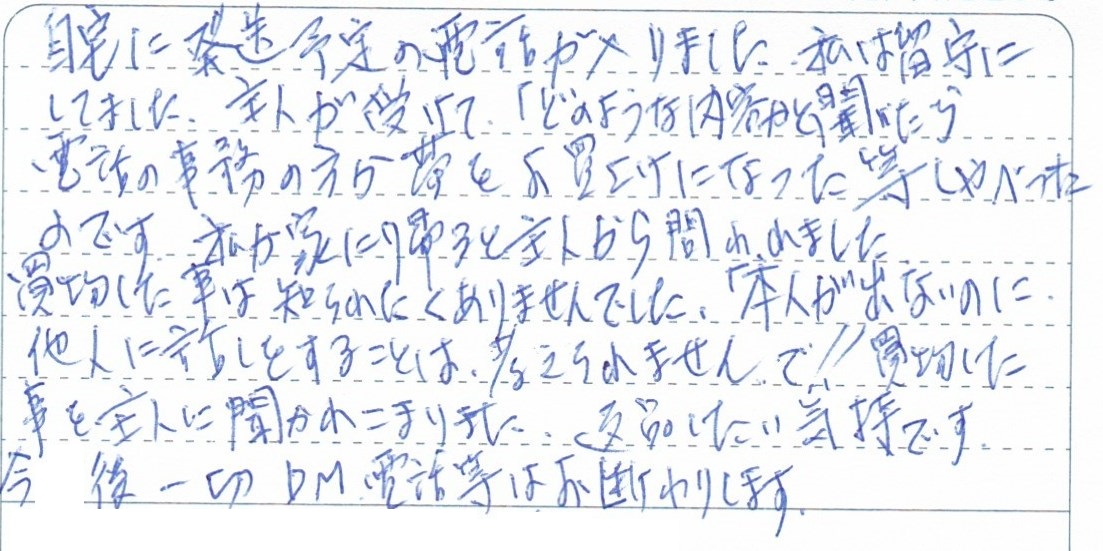 自宅に発送予定の電話が入りました。私は留守に
してました。主人が受けて、「どのような内容かと聞いたら
電話の事務の方が帯をお買上げになった等しゃべった
のです。私が家に帰ると主人から問われました。
買物した事は知られたくありませんでした。「本人が出ないのに
他人に話しをすることは、考えられません。で!!買物した
事を主人に聞かれこまりました。返品したい気持です。
今後一切DM電話等はお断わりします。